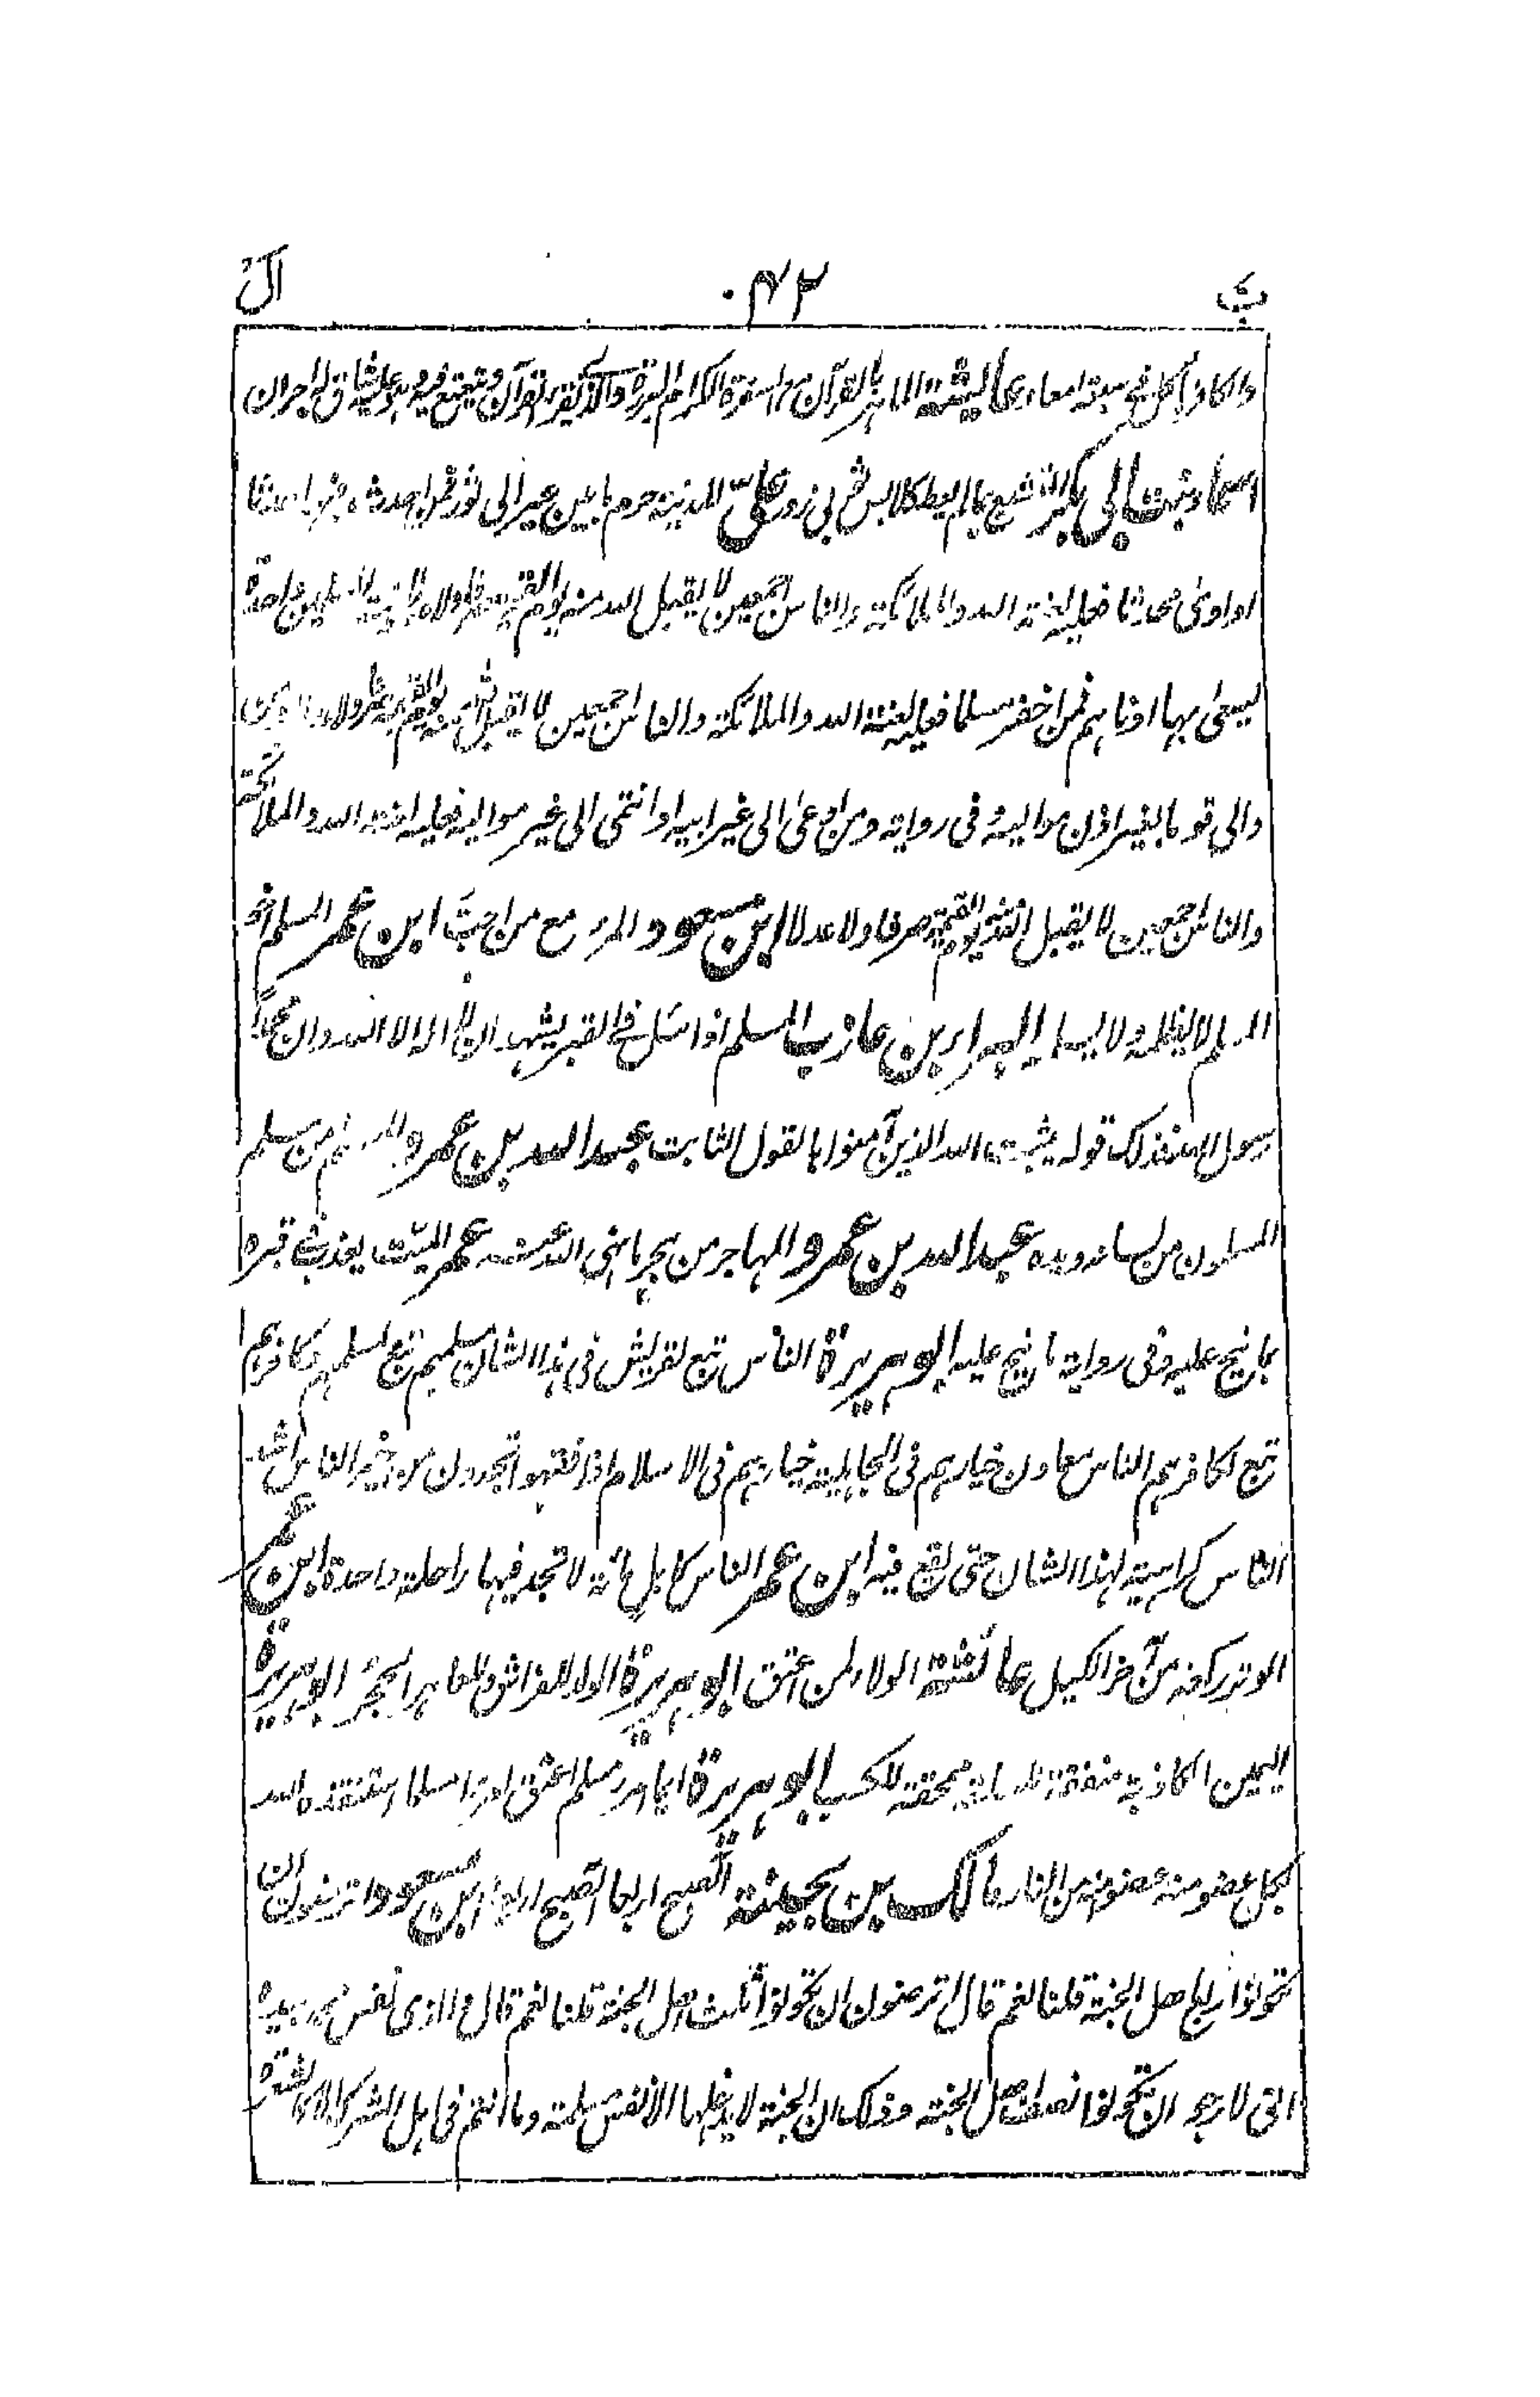 ب ٠٤٢ ال
والكافر يأكل في سبعة امعاء عائشة الماهر بالقرآن مع السفرة الكرام البررة والذي يقرء القرآن ويتعتع فيه وهو عليه شاق له اجران
اسماء بنت ابي بكر المتشبع بما لم يعط كلابس ثوبي زور علي المدينة حرم ما بين عير الى ثور فمن احدث فيها حدثا
او اوى محدثا فعليه لعنة الله والملائكة والناس اجمعين لا يقبل الله منه يوم القيمة صرفا ولا عدلا ذمة المسلمين واحدة
يسعى بها ادناهم فمن اخفر مسلما فعليه لعنة الله والملائكة والناس اجمعين لا يقبل الله منه يوم القيمة صرفا ولا عدلا ومن
والى قوما بغير اذن مواليه وفي رواية ومن ادعى الى غير ابيه او انتمى الى غير مواليه فعليه لعنة الله والملائكة
والناس اجمعين لا يقبل الله منه يوم القيمة صرفا ولا عدلا ابن مسعود المرء مع من احب ابن عمر المسلم اخو
المسلم لا يظلمه ولا يسلمه البراء بن عازب المسلم اذا سئل في القبر يشهد ان لا اله الا الله وان محمدا
رسول الله فذلك قوله يثبت الله الذين آمنوا بالقول الثابت عبد الله بن عمرو المسلم من سلم
المسلمون من لسانه ويده عبد الله بن عمرو المهاجر من هجر ما نهى الله عنه عمر الميت يعذب في قبره
بما نيح عليه وفي رواية ما نيح عليه ابو هريرة الناس تبع لقريش في هذا الشان مسلمهم تبع لمسلمهم وكافرهم
تبع لكافرهم الناس معادن خيارهم في الجاهلية خيارهم في الاسلام اذا فقهوا تجدون من خير الناس اشد
الناس كراهية لهذا الشان حتى يقع فيه ابن عمر الناس كابل مائة لا تجد فيها راحلة واحدة ابن عمر
الوتر ركعة من آخر الليل عائشة الولاء لمن اعتق ابو هريرة الولد للفراش وللعاهر الحجر ابو هريرة
اليمين الكاذبة منفقة للسلعة ممحقة للكسب ابو هريرة ايما امرء مسلم اعتق امرءا مسلما استنقذ الله
بكل عضو منه عضوا منه من النار مالك بن بحينة آلصبح اربعا آلصبح اربعا ابن مسعود اترضون ان
تكونوا ربع اهل الجنة قلنا نعم قال اترضون ان تكونوا ثلث اهل الجنة قلنا نعم قال والذي نفس محمد بيده
اني لارجو ان تكونوا نصف اهل الجنة وذلك ان الجنة لا يدخلها الا نفس مسلمة وما انتم في اهل الشرك الا كالشعرة